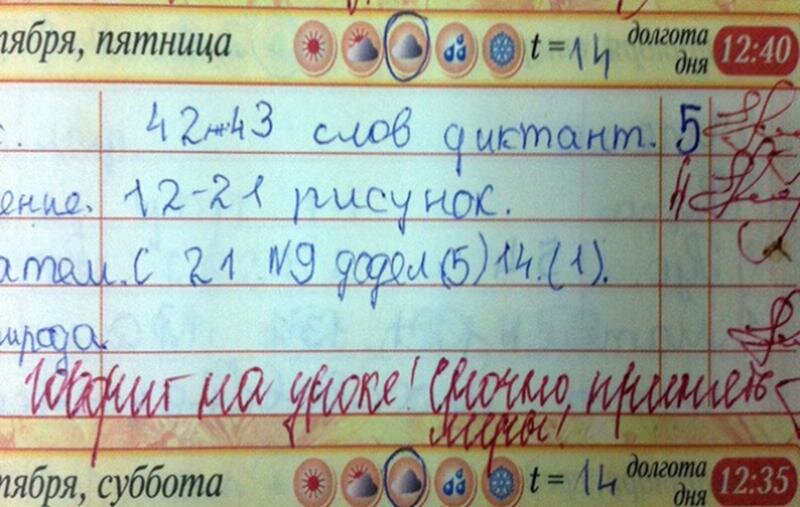 тября, пятница t = 14 долгота дня 12:40
с. 42-43 слов диктант. 5
ение. 12-21 рисунок. 4
атем. С 21 №9 додел (5) 14.(1).
ирода.
Говорит на уроке! Срочно примите
меры!
тября, суббота t = 14 долгота дня 12:35